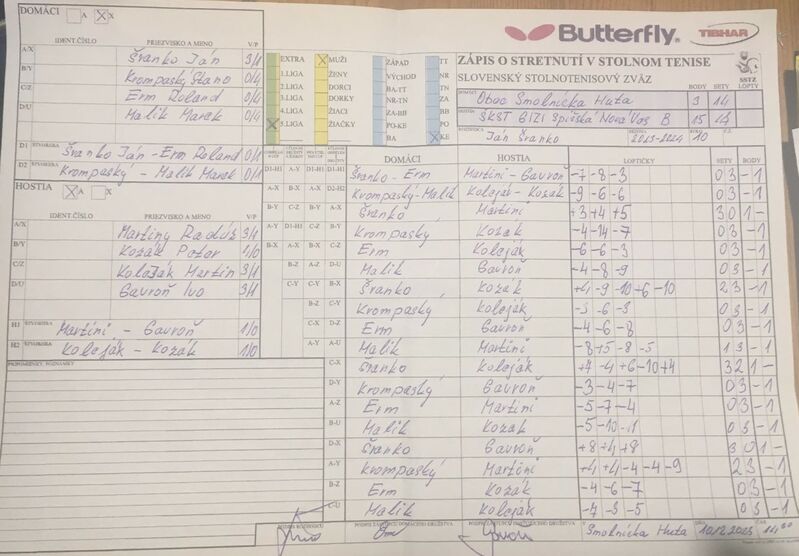 DOMÁCI A X
Butterfly TIBHAR
IDENT.ČÍSLO PRIEZVISKO A MENO V/P
A/X Šranko Ján 3/1
B/Y Krompaský Stano 0/4
C/Z Erm Roland 0/4
D/U Malik Marek 0/4
EXTRA MUŽI ZÁPAD TT
1.LIGA ŽENY VÝCHOD NR
2.LIGA DORCI BA-TT TN
3.LIGA DORKY NR-TN ZA
4.LIGA ŽIACI ZA-BB BB
5.LIGA ŽIAČKY PO-KE PO
BA KE
ZÁPIS O STRETNUTÍ V STOLNOM TENISE
SLOVENSKÝ STOLNOTENISOVÝ ZVÄZ
BODY SETY LOPTY
SSTZ
Obec Smolnícka Huta 3 14
ŠKST GIZI Spišská Nová Ves B 15
Ján Šranko 2023-2024 10
D1 ŠTVORHRA Šranko Ján - Erm Roland 0/1
D2 ŠTVORHRA Krompaský - Malik Marek 0/1
HOSTIA A X
IDENT.ČÍSLO PRIEZVISKO A MENO V/P
A/X Martiny Radúz 3/1
B/Y Kozák Peter 4/0
C/Z Koleják Martin 3/1
D/U Gavroň Ivo 3/1
H1 ŠTVORHRA Martini - Gavroň 1/0
H2 ŠTVORHRA Koleják - Kozák 1/0
PRIPOMIENKY, POZNÁMKY
DOMÁCI HOSTIA LOPTIČKY SETY BODY
Šranko - Erm Martini - Gavroň -7 -8 -3 0 3 - 1
Krompaský - Malik Koleják - Kozak -9 -6 -6 0 3 - 1
Šranko Martini +3 +4 +5 3 0 1 -
Krompaský Kozak -4 -14 -7 0 3 - 1
Erm Koleják -6 -6 -3 0 3 - 1
Malik Gavroň -4 -8 -9 0 3 - 1
Šranko Kozak +4 -9 -10 +6 -10 2 3 - 1
Krompaský Koleják -3 -6 -3 0 3 - 1
Erm Gavroň -4 -6 -8 0 3 - 1
Malik Martini -8 +5 -8 -5 1 3 - 1
C-X Šranko Koleják +7 -4 +6 -10 +4 3 2 1 -
D-Y Krompaský Gavroň -3 -4 -7 0 3 - 1
A-Z Erm Martini -5 -7 -4 0 3 - 1
B-U Malik Kozak -5 -10 -11 0 3 - 1
D-X Šranko Gavroň +8 +4 +8 3 0 1 -
A-Y Krompaský Martini +4 +4 -4 -4 -9 2 3 - 1
B-Z Erm Kozák -4 -6 -7 0 3 - 1
C-U Malik Koleják -7 -3 -5 0 3 - 1
PODPIS ROZHODCU PODPIS ZÁSTUPCU DOMÁCEHO DRUŽSTVA
V Smolnícka Huta DŇA 10.12.2023 ČAS 14:00